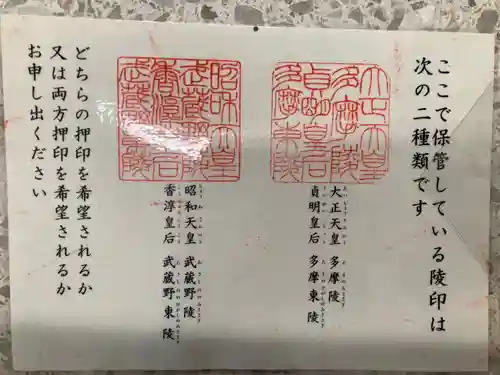 ここで保管している陵印は
次の二種類です
大正天皇
多摩陵
貞明皇后
多摩東陵
大正天皇 多摩陵
貞明皇后 多摩東陵
昭和天皇
武蔵野陵
香淳皇后
武蔵野東陵
昭和天皇 武蔵野陵
香淳皇后 武蔵野東陵
どちらの押印を希望されるか
又は両方押印を希望されるか
お申し出ください